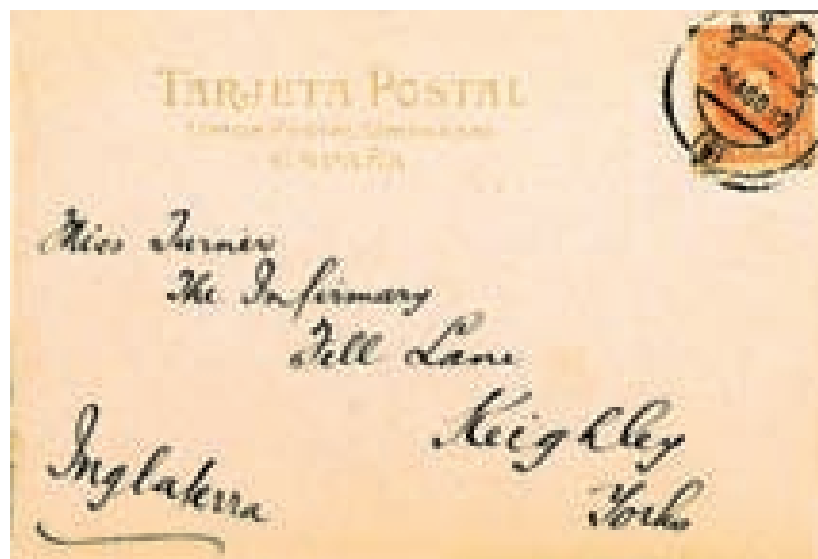 TARJETA POSTAL
UNION POSTAL UNIVERSAL
ESPAÑA
Miss Turner
The Infirmary
Fell Lane
Keighley
Yorks
Inglaterra